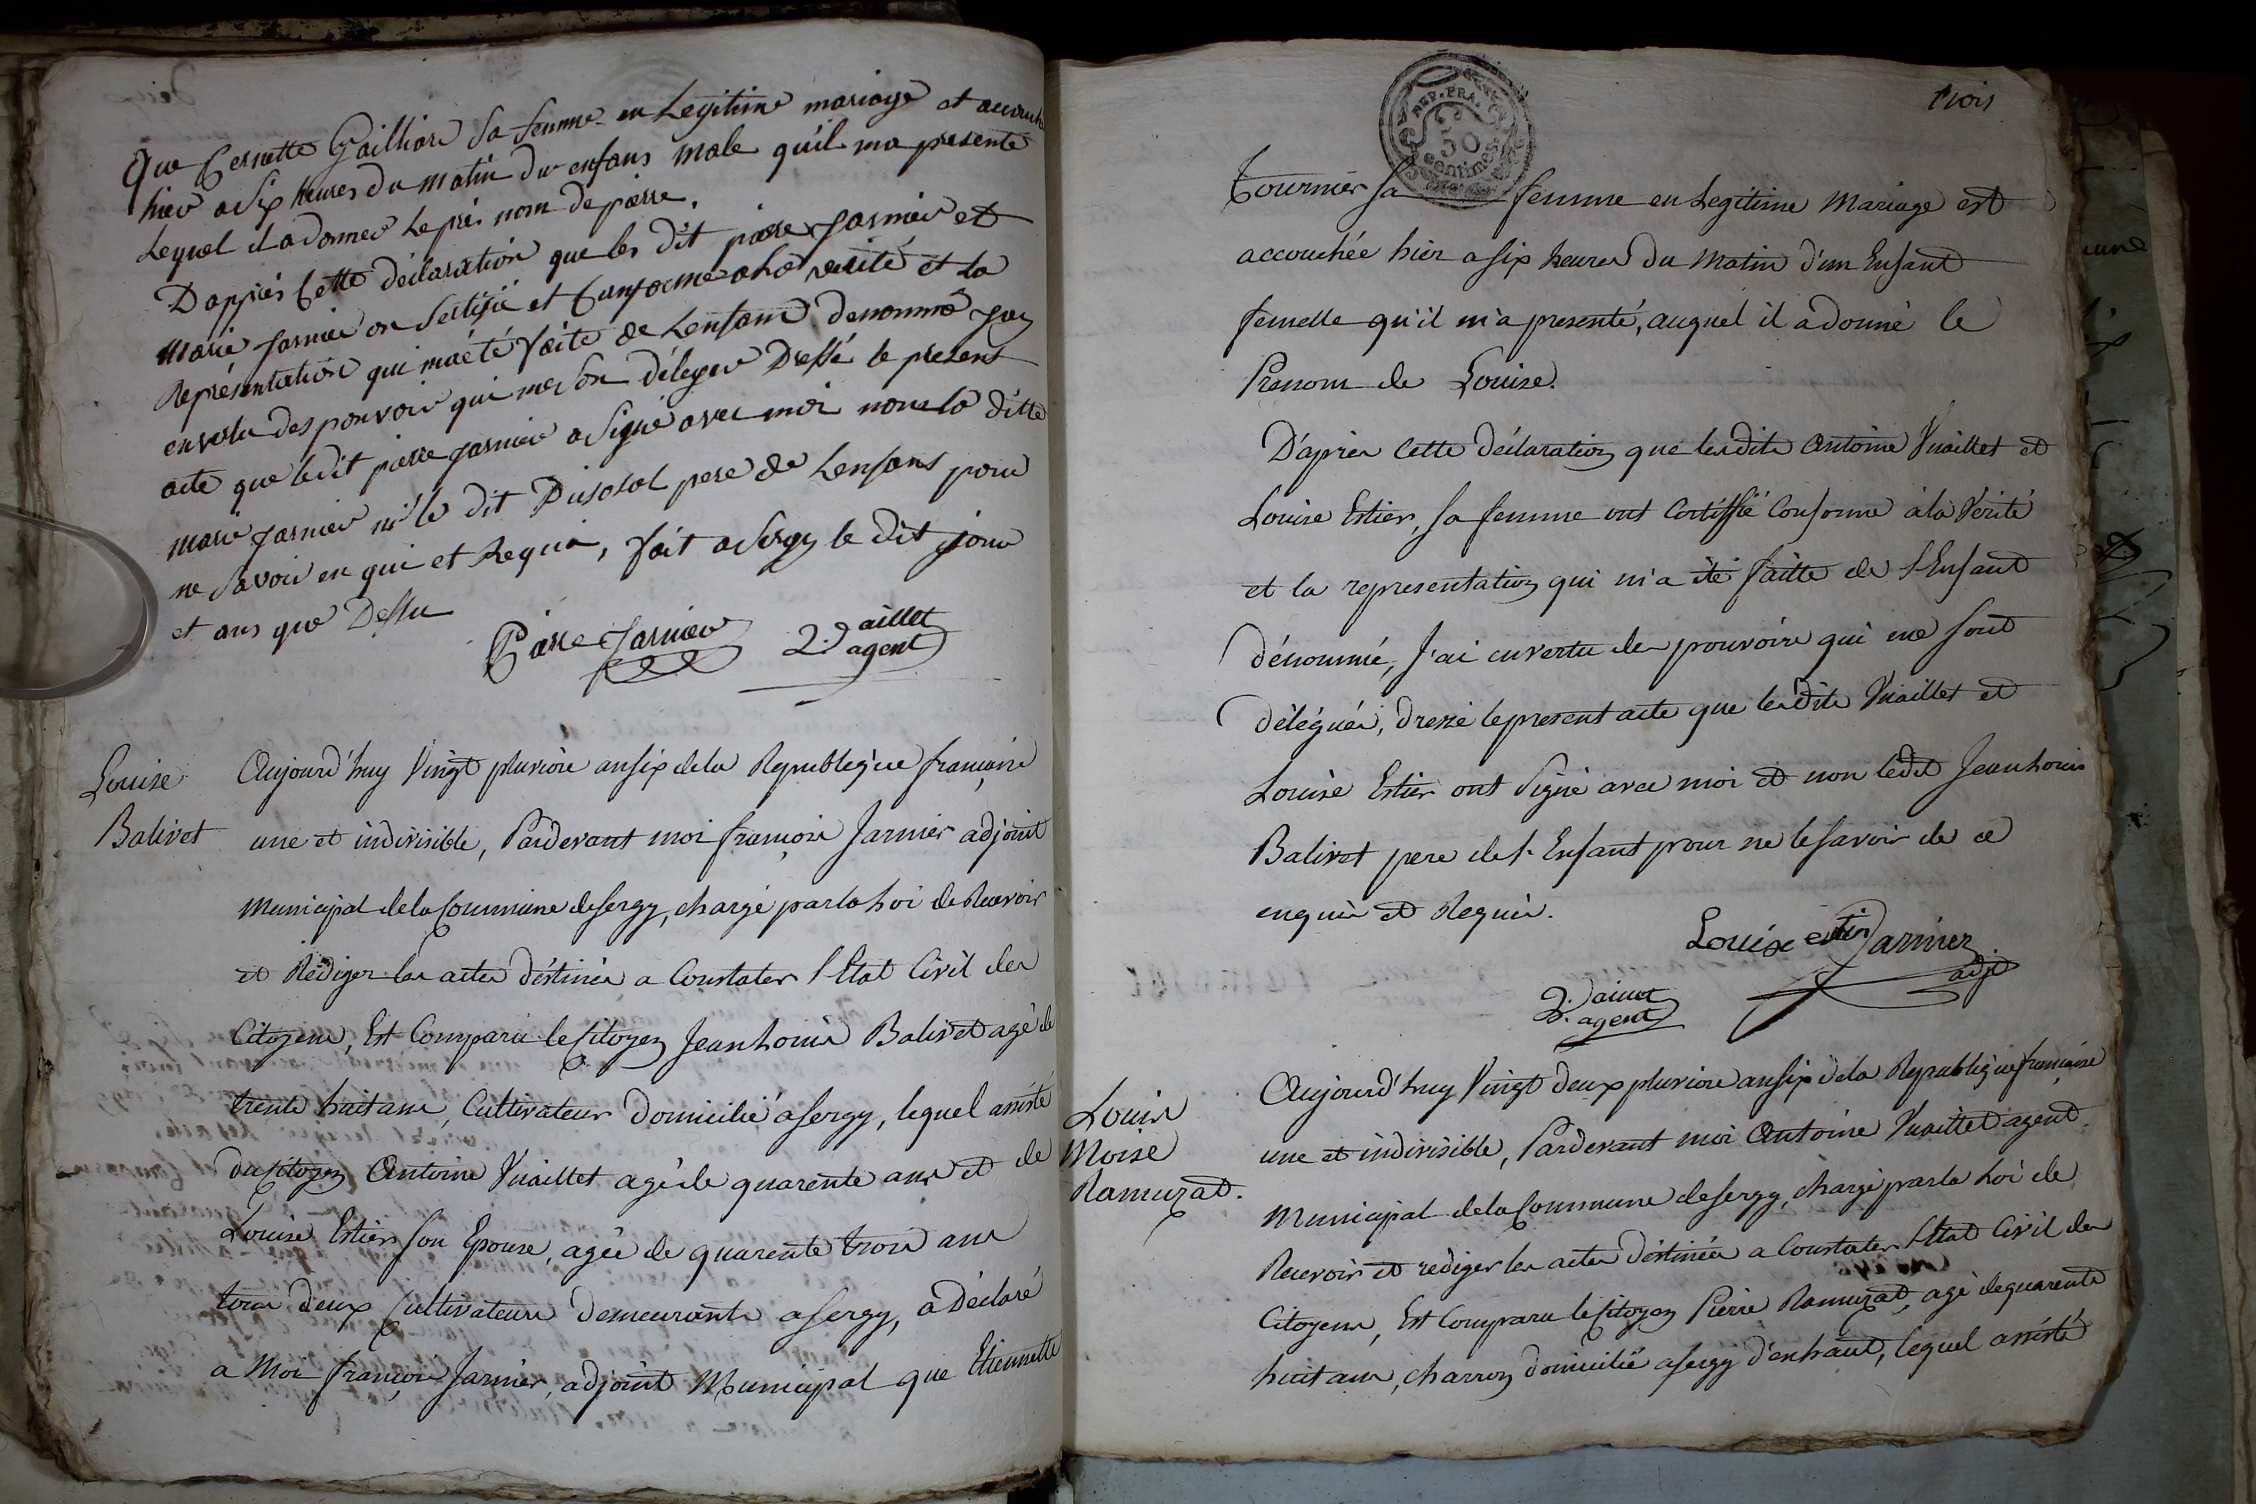 Que Pernette Gailliard sa femme en Legitime mariage et accouch
hier a six heures du matin du enfans male quil ma presente
Lequel il a donner Le prés nom de pierre.
D'apprés Cette déclaration que les dit pierre Jarnier et
Marie Jarnier on sertifié et Conforme a la verité et La
Représentation qui ma été faite de Lenfant denommé jai
en vertu des pouvoir qui me son déleguer Dressé le present
acte que ledit pierre Jarnier a signé avec moi non la ditte
Marie Jarnier ni le dit pere de Lenfans pour
ne savoir en qui et Requis, fait a sergy le dit jour
et ans que Dessu
Piere Jarnier
2. Vaillet
agent
Louise
Balivet
Aujourd'huy Vingt pluviose an six de la Republeq'ue françoise
une et indivisible, Pardevant moi françois Jarnier adjoint
Municipal de la Commune de sergy, chargé par la Loi de Recevoir
et Rédiger les actes déstinés a Constater l'Etat Civil des
Citoyens, Est Comparu le Citoyen Jean Louis Balivet agé de
trente huit ans, Cultivateur domicilié a sergy, lequel assisté
du Citoyen Antoine Vuaillet agé de quarente ans et de
Louise Estier son Epouse, agée de quarente trois ans
tous deux Cultivateurs demeurants a sergy, a Déclaré
a Moi françois Jarnier, adjoint Municipal que Etiennette
trois
REP. FRA.
50
centimes
Tournier sa femme en Legitime Mariage est
accouchée hier a six heures du Matin d'un Enfant
femelle qu'il m'a presenté, auquel il a donné le
Prenom de Louise.
D'après Cette déclaration que lesdits Antoine Vuaillet et
Louise Estier, sa femme ont Certiffié Conforme à la Vérité
et la representation qui m'a été faitte de l'Enfant
dénommé, J'ai en vertu des pouvoirs qui me sont
délégués, dressé le present acte que lesdits Vuaillet et
Louise Estier ont Signé avec moi et non ledit Jean Louis
Balivet pere de l'Enfant pour ne le savoir de ce
enquis et Requis.
Louise estier Jarnier
adjt
2. Vaillet
agent
Louis
Moise
Ramuzat.
Aujourd'huy Vingt deux pluviose an six de la Republeq'ue françaíse
une et indivisible, Pardevant moi Antoine Vuaillet agent
Municipal de la Commune de sergy, chargé par la Loi de
Recevoir et rediger les actes déstinés a Constater l'Etat Civil des
Citoyens, Est Comparu le Citoyen Pierre Ramuzat, agé de quarente
huit ans, charron domicilié a sergy d'enhaut, lequel assisté